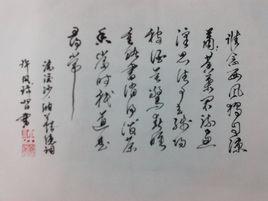 誰念西風獨自涼
蕭〻黃葉閉疏窗
沉思往事立殘陽
被酒莫驚春睡
重賭書消得潑茶
香當時祇道是
尋常
浣溪沙 納蘭性德詞
習書